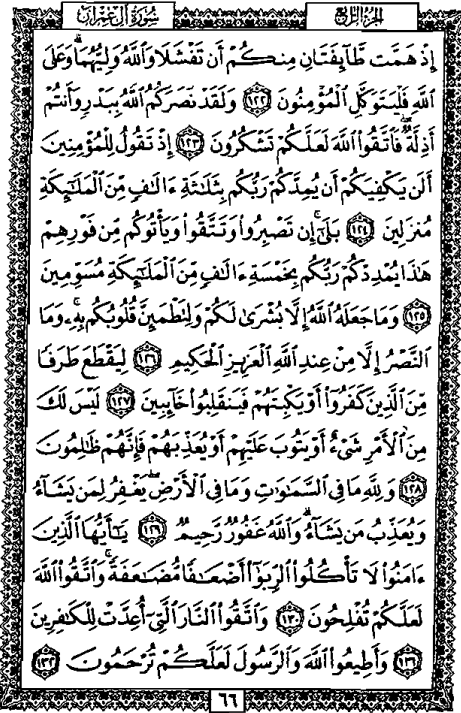 سُورَةُ آلِ عِمْرَان
الجُزءُ الرَّابِعُ
إِذْ هَمَّت طَّآئِفَتَانِ مِنكُمْ أَن تَفْشَلَا وَٱللَّهُ وَلِيُّهُمَا ۗ وَعَلَى
ٱللَّهِ فَلْيَتَوَكَّلِ ٱلْمُؤْمِنُونَ ١٢٢ وَلَقَدْ نَصَرَكُمُ ٱللَّهُ بِبَدْرٍ وَأَنتُمْ
أَذِلَّةٌ ۖ فَٱتَّقُوا۟ ٱللَّهَ لَعَلَّكُمْ تَشْكُرُونَ ١٢٣ إِذْ تَقُولُ لِلْمُؤْمِنِينَ
أَلَن يَكْفِيَكُمْ أَن يُمِدَّكُمْ رَبُّكُم بِثَلَٰثَةِ ءَالَٰفٍ مِّنَ ٱلْمَلَٰٓئِكَةِ
مُنزَلِينَ ١٢٤ بَلَىٰٓ ۚ إِن تَصْبِرُوا۟ وَتَتَّقُوا۟ وَيَأْتُوكُم مِّن فَوْرِهِمْ
هَٰذَا يُمْدِدْكُمْ رَبُّكُم بِخَمْسَةِ ءَالَٰفٍ مِّنَ ٱلْمَلَٰٓئِكَةِ مُسَوِّمِينَ
١٢٥ وَمَا جَعَلَهُ ٱللَّهُ إِلَّا بُشْرَىٰ لَكُمْ وَلِتَطْمَئِنَّ قُلُوبُكُم بِهِۦ ۗ وَمَا
ٱلنَّصْرُ إِلَّا مِنْ عِندِ ٱللَّهِ ٱلْعَزِيزِ ٱلْحَكِيمِ ١٢٦ لِيَقْطَعَ طَرَفًا
مِّنَ ٱلَّذِينَ كَفَرُوٓا۟ أَوْ يَكْبِتَهُمْ فَيَنقَلِبُوا۟ خَآئِبِينَ ١٢٧ لَيْسَ لَكَ
مِنَ ٱلْأَمْرِ شَىْءٌ أَوْ يَتُوبَ عَلَيْهِمْ أَوْ يُعَذِّبَهُمْ فَإِنَّهُمْ ظَٰلِمُونَ
١٢٨ وَلِلَّهِ مَا فِى ٱلسَّمَٰوَٰتِ وَمَا فِى ٱلْأَرْضِ ۚ يَغْفِرُ لِمَن يَشَآءُ
وَيُعَذِّبُ مَن يَشَآءُ ۚ وَٱللَّهُ غَفُورٌ رَّحِيمٌ ١٢٩ يَٰٓأَيُّهَا ٱلَّذِينَ
ءَامَنُوا۟ لَا تَأْكُلُوا۟ ٱلرِّبَوٰٓا۟ أَضْعَٰفًا مُّضَٰعَفَةً ۖ وَٱتَّقُوا۟ ٱللَّهَ
لَعَلَّكُمْ تُفْلِحُونَ ١٣٠ وَٱتَّقُوا۟ ٱلنَّارَ ٱلَّتِىٓ أُعِدَّتْ لِلْكَٰفِرِينَ
١٣١ وَأَطِيعُوا۟ ٱللَّهَ وَٱلرَّسُولَ لَعَلَّكُمْ تُرْحَمُونَ ١٣٢
٦٦